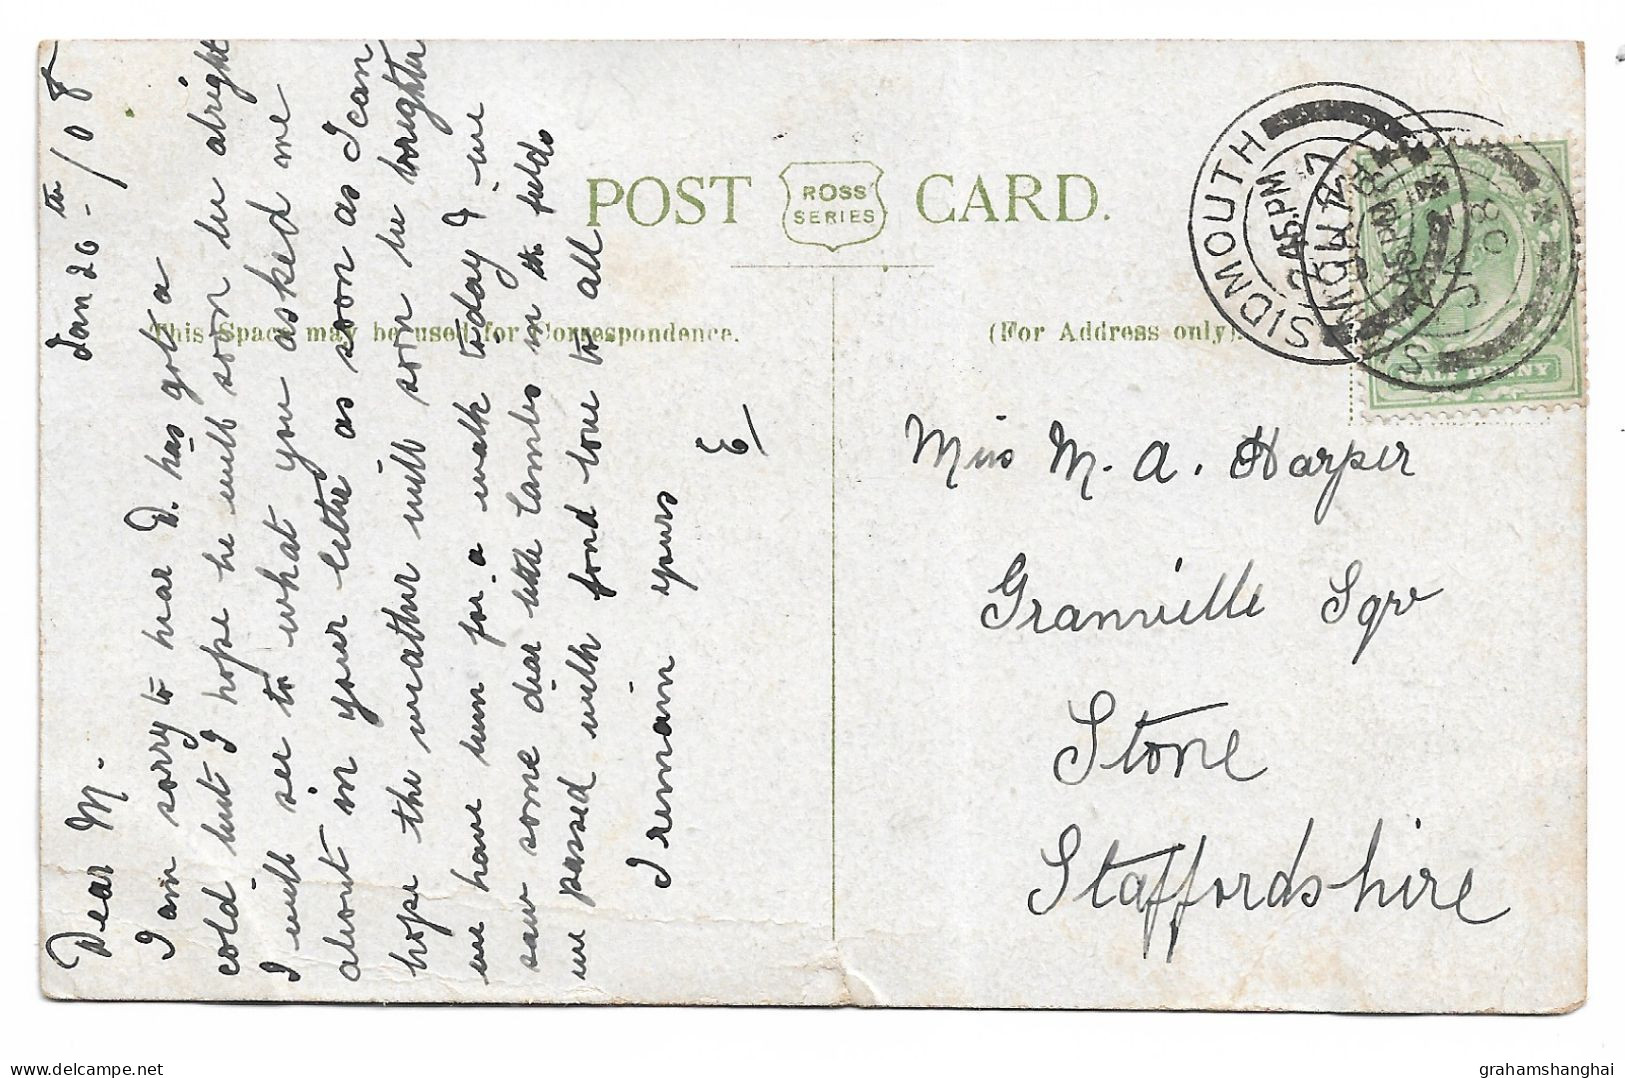 POST CARD.
ROSS
SERIES
This Space may be used for Correspondence.
(For Address only).
Jan 26th/08
Dear M.
I am sorry to hear D. has got a
cold but I hope he will soon be alright
I will see to what you asked me
about in your letter as soon as I can
hope the weather will soon be brighter
we have been for a walk to,day I we
saw some dear little lambs in the fields
we passed with fond love to all
I remain yours
E/
Miss M. A. Harper
Granville Sqre
Stone
Staffordshire
SIDMOUTH
2.45.PM
JA
08
HALF PENNY
delcampe.net
grahamshanghai